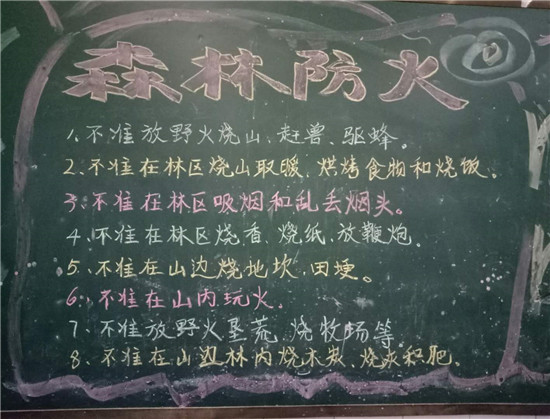 森林防火
1、不准放野火烧山、赶兽、驱蜂。
2、不准在林区烧山取暖、烘烤食物和烧饭。
3、不准在林区吸烟和乱丢烟头。
4、不准在林区烧香、烧纸、放鞭炮。
5、不准在山边烧地坎、田埂。
6、不准在山内玩火。
7、不准放野火垦荒、烧牧场等。
8、不准在山边林内烧木炭、烧灰和肥。